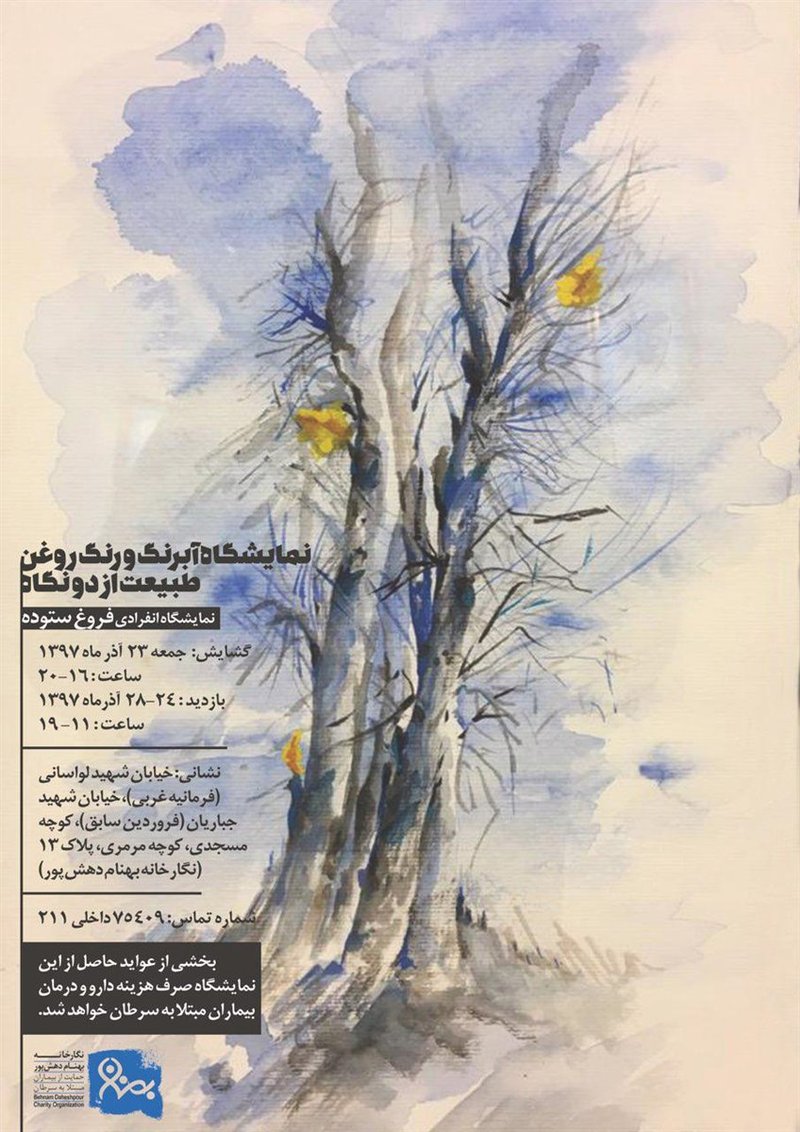 نمایشگاه آبرنگ و رنگ روغن
طبیعت از دو نگاه
نمایشگاه انفرادی فروغ ستوده
گشایش: جمعه ۲۳ آذر ماه ۱۳۹۷
ساعت: ۱۶-۲۰
بازدید: ۲۴-۲۸ آذرماه ۱۳۹۷
ساعت: ۱۱-۱۹
نشانی: خیابان شهید لواسانی
(فرمانیه غربی)، خیابان شهید
جباریان (فروردین سابق)، کوچه
مسجدی، کوچه مرمری، پلاک ۱۳
(نگارخانه بهنام دهش پور)
شماره تماس: ۷۵۴۰۹ داخلی ۲۱۱
بخشی از عواید حاصل از این
نمایشگاه صرف هزینه دارو و درمان
بیماران مبتلا به سرطان خواهد شد.
نگارخانه
بهنام دهش‌پور
حمایت از بیماران
مبتلا به سرطان
Behnam Daheshpour
Charity Organization
بهنام